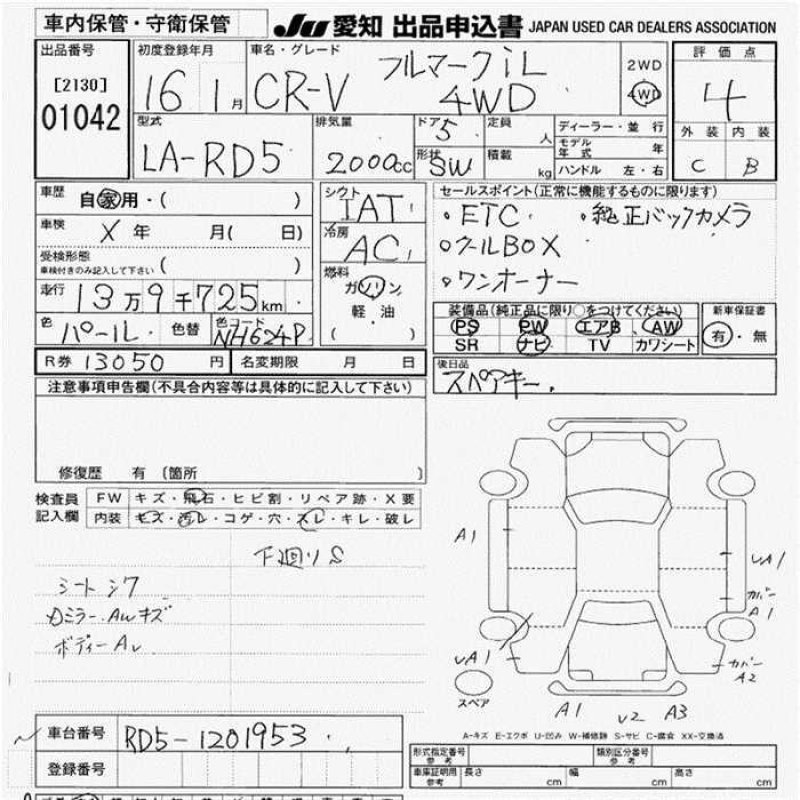 車内保管・守衛保管 JU 愛知 出品申込書 JAPAN USED CAR DEALERS ASSOCIATION
出品番号 初度登録年月 車名・グレード 評価点
[2130] 16 1月 CR-V フルマークiL 4WD 2WD 4WD 4
01042
外装 内装
C B
型式 排気量 ドア 定員 ディーラー・並行
LA-RD5 2000cc 5 人 モデル年式 年
形状 SW 積載 kg ハンドル 左・右
車歴 自家用・( ) シフト IAT セールスポイント(正常に機能するものに限ります)
車検 X年 月( 日) 冷房 AC ・ETC ・純正バックカメラ
受検形態 ・クールBOX
車検付きのみ記入して下さい ( ) 燃料 ・ワンオーナー
走行 13万9千725km ガソリン
軽・油
( )
色 パール 色替 色コード NH624P
装備品(純正品に限り○をつけてください) 新車保証書
PS PW エアB AW 有・無
SR ナビ TV カワシート
R券 13050円 名変期限 月 日 後日品
スペアキー.
注意事項申告欄(不具合内容等は具体的に記入して下さい)
修復歴 有 [箇所 ]
検査員 FW キズ・飛石・ヒビ割・リペア跡・X要
記入欄 内装 キズ・汚レ・コゲ・穴・スレ・キレ・破レ
下廻りS
シートシワ
ミラー.AWキズ
ボディー
A1
A1
カバー
A1
A1
カバー
A2
スペア
A1 A3
A-キズ E-エクボ U-凹み W-補修跡 S-サビ C-腐食 XX-交換済
車台番号 RD5-1201953
登録番号
形式指定番号 参考 類別区分番号 参考
車庫証明用 参考 長さ cm 幅 cm 高さ cm